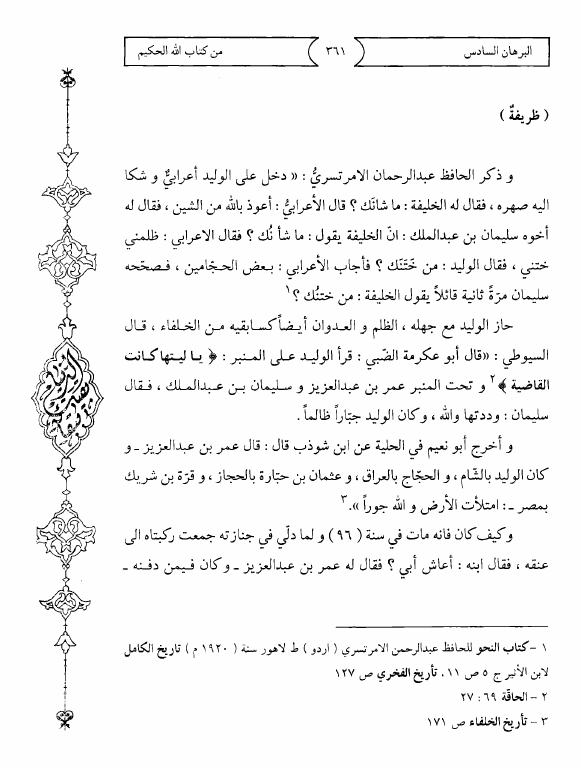 البرهان السادس ٣٦١ من كتاب الله الحكيم
( ظريفةٌ )
و ذكر الحافظ عبدالرحمان الامرتسريُّ : « دخل على الوليد أعرابيٌّ و شكا
اليه صهره ، فقال له الخليفة : ما شانَك ؟ قال الأعرابيُّ : أعوذ بالله من الشين ، فقال له
أخوه سليمان بن عبدالملك : انّ الخليفة يقول : ما شأ نُك ؟ فقال الاعرابي : ظلمني
ختني ، فقال الوليد : من خَتَنَك ؟ فأجاب الأعرابي : بعض الحجّامين ، فـصحّحه
سليمان مرّةً ثانية قائلاً يقول الخليفة : من ختنُك ؟١
حاز الوليد مع جهله ، الظلم و العدوان أيضاً كسابقيه مـن الخلفاء ، قـال
السيوطي : «قال أبو عكرمة الضّبي : قرأ الوليـد عـلى المـنبر : ﴿ يـا ليـتها كـانت
القاضية ﴾٢ و تحت المنبر عمر بن عبدالعزيز و سليمان بـن عبدالمـلك ، فـقال
سليمان : وددتها والله ، و كان الوليد جبّاراً ظالماً .
و أخرج أبو نعيم في الحلية عن ابن شوذب قال : قال عمر بن عبدالعزيز ـ و
كان الوليد بالشّام ، و الحجّاج بالعراق ، و عثمان بن حبّارة بالحجاز ، و قرّة بن شريك
بمصر ـ : امتلأت الأرض و الله جوراً ».٣
و كيف كان فانه مات في سنة ( ٩٦ ) و لما دلّي في جنازته جمعت ركبتاه الى
عنقه ، فقال ابنه : أعاش أبي ؟ فقال له عمر بن عبدالعزيز ـ و كان فـيمن دفـنه ـ
١ - كتاب النحو للحافظ عبدالرحمن الامرتسري ( اردو ) ط لاهور سنة ( ١٩٢٠ م ) تاريخ الكامل
لابن الأثير ج ٥ ص ١١ ، تأريخ الفخري ص ١٢٧
٢ - الحاقّة ٦٩ : ٢٧
٣ - تأريخ الخلفاء ص ١٧١